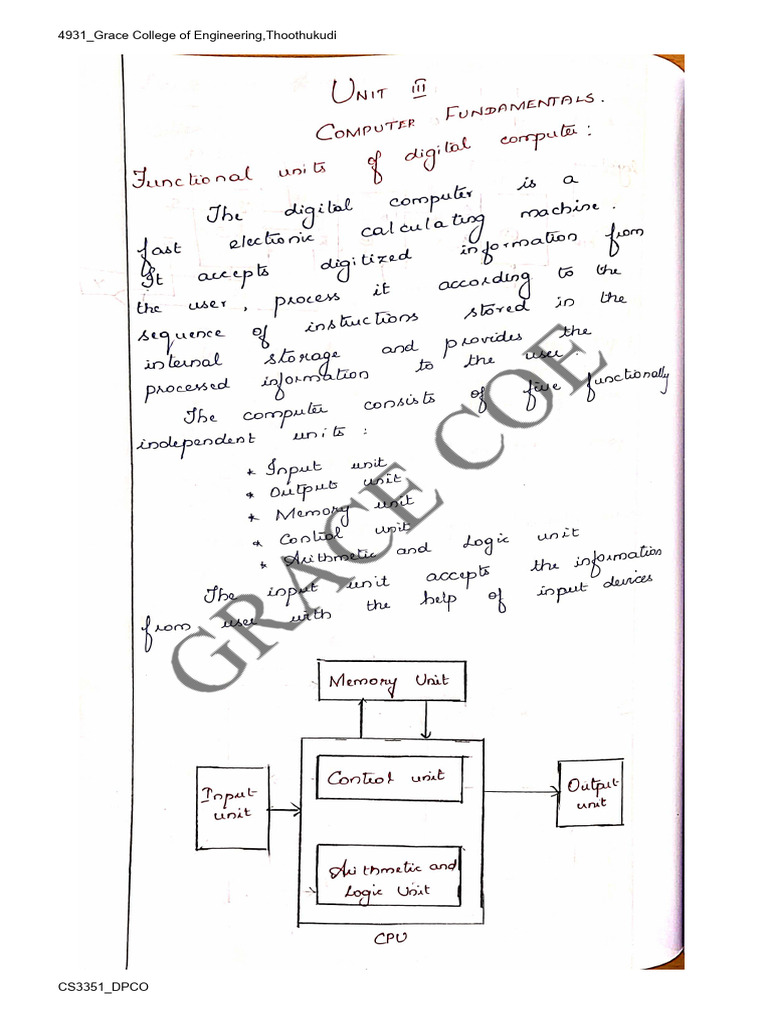 4931_Grace College of Engineering,Thoothukudi
UNIT III
COMPUTER FUNDAMENTALS.
Functional units of digital computer:
The digital computer is a
fast electronic calculating machine.
It accepts digitized information from
the user, process it according to the
sequence of instructions stored in the
internal storage and provides the
processed information to the user.
The computer consists of five functionally
independent units:
* Input unit
* Output unit
* Memory unit
* Control unit
* Arithmetic and Logic unit
The input unit accepts the information
from user with the help of input devices
GRACE COE
Memory Unit
Control unit
Input
unit
Output
unit
Arithmetic and
Logic Unit
CPU
CS3351_DPCO